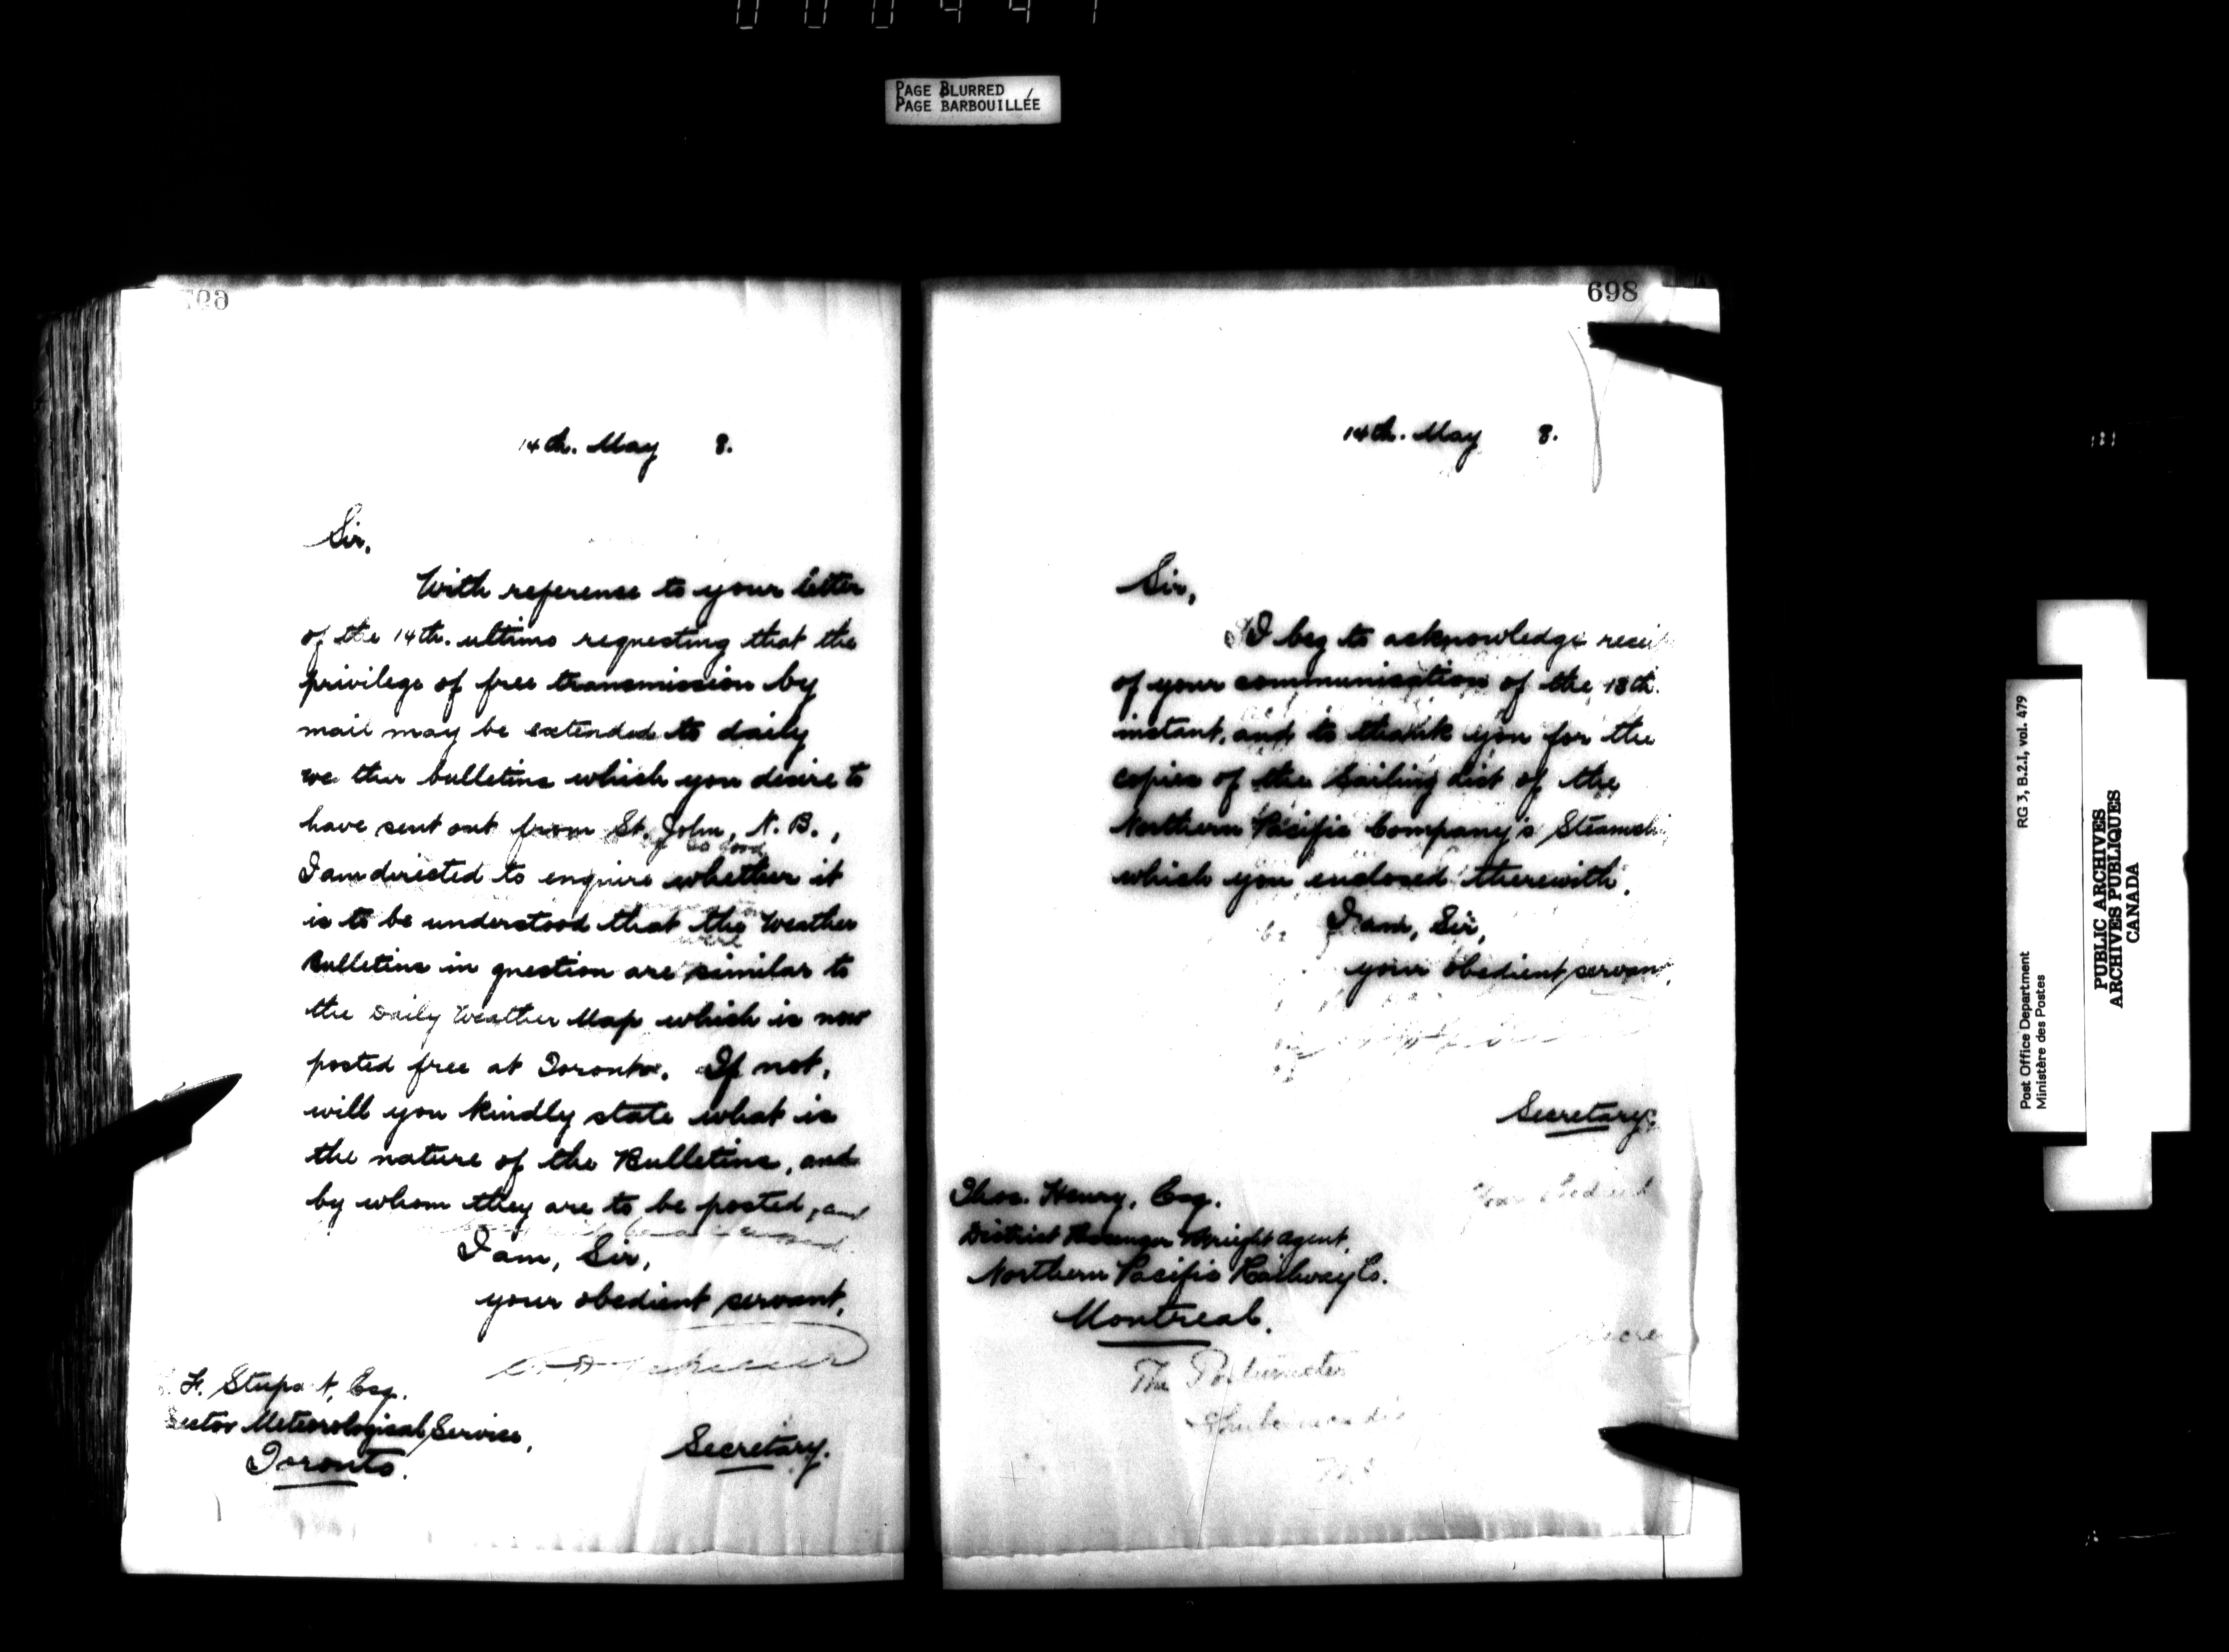 PAGE BLURRED
PAGE BARBOUILLÉE
14th. May 8.
Sir,
With reference to your letter
of the 14th. ultimo requesting that the
privilege of free transmission by
mail may be extended to daily
we ther bulletins which you desire to
have sent out from St. John, N. B.,
I am directed to enquire whether it
is to be understood that the Weather
Bulletins in question are similar to
the Daily Weather Map which is now
posted free at Toronto. If not,
will you kindly state what is
the nature of the Bulletins, and
by whom they are to be posted, and
I am, Sir,
your obedient servant,
F. Stupa t, Esq.
ector Meteorological Service,
Toronto.
Secretary.
698
14th. May 8.
Sir,
I beg to acknowledge recei
of your communication of the 13th.
instant, and to thank you for the
copies of the Sailing List of the
Northern Pacific Company's Steamshi
which you enclosed therewith.
I am, Sir,
your obedient servant,
Secretary.
Thos. Henry, Esq.
District Passenger Freight Agent,
Northern Pacific Railway Co.
Montreal.
The Postmaster
RG 3, B.2.I, vol. 479
Post Office Department
Ministère des Postes
PUBLIC ARCHIVES
ARCHIVES PUBLIQUES
CANADA